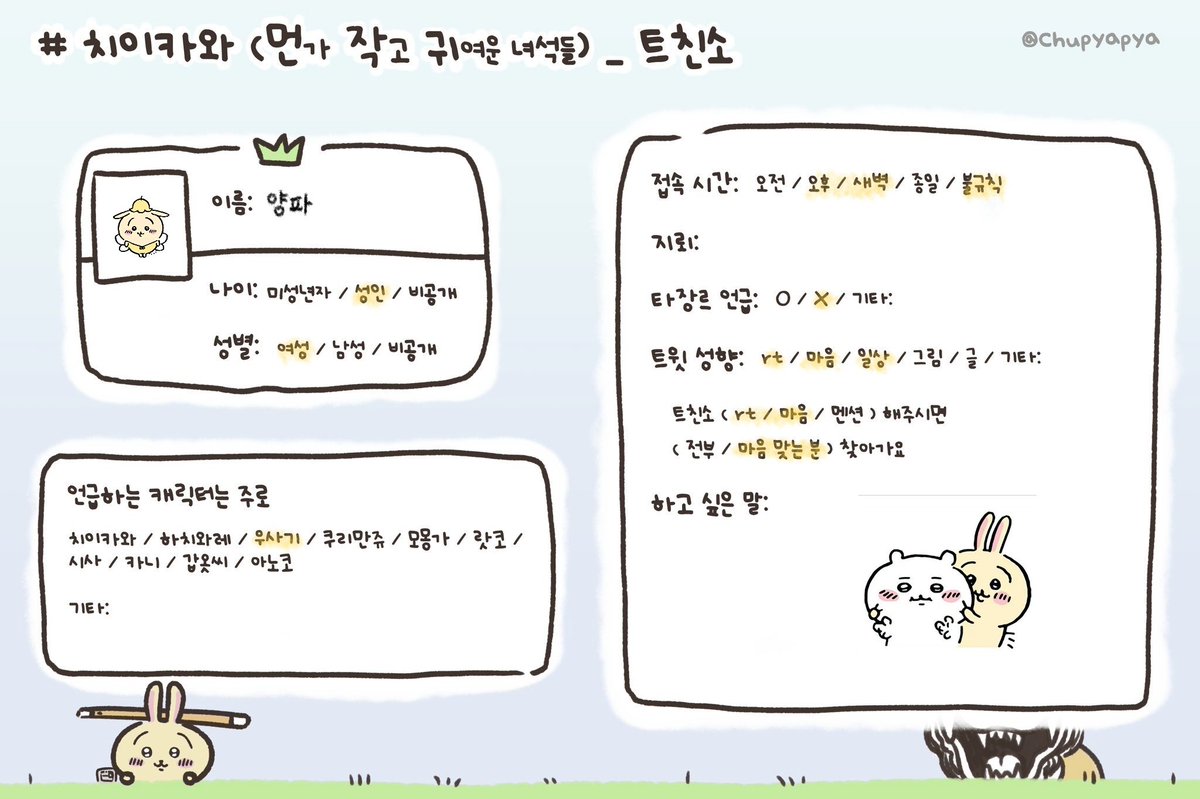 # 치이카와 (먼가 작고 귀여운 녀석들) _ 트친소
@Chupyapya
이름: 양파
나이: 미성년자 / 성인 / 비공개
성별: 여성 / 남성 / 비공개
언급하는 캐릭터는 주로
치이카와 / 하치와레 / 우사기 / 쿠리만쥬 / 모몽가 / 랏코 /
시사 / 카니 / 갑옷씨 / 아노코
기타:
접속 시간: 오전 / 오후 / 새벽 / 종일 / 불규칙
지뢰:
타장르 언급: O / X / 기타:
트윗 성향: rt / 마음 / 일상 / 그림 / 글 / 기타:
트친소 ( rt / 마음 / 멘션 ) 해주시면
( 전부 / 마음 맞는 분 ) 찾아가요
하고 싶은 말: